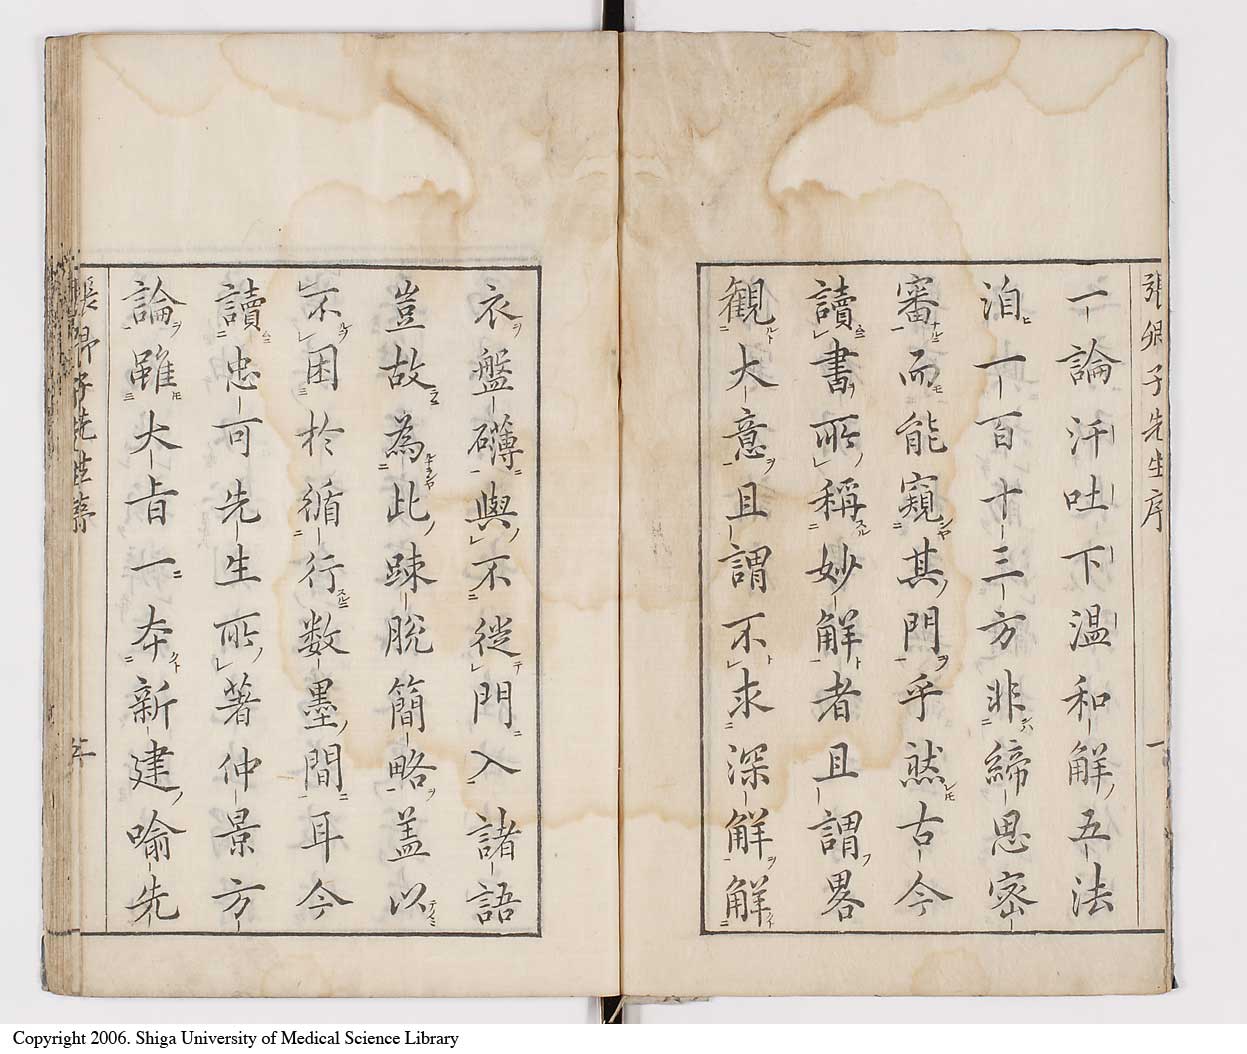 張卿子先生序 一
一論汗吐下温和解五法
洎一百十三方非締思密
審而能窺其門乎然古今
讀書所稱妙解者且謂畧
観大意且謂不求深解解
衣盤礴與不從門入諸語
豈故為此踈脫簡略盖以
不困於循行数墨間耳今
讀忠可先生所著仲景方
論雖大旨一本新建喻先
張卿子先生序
Copyright 2006. Shiga University of Medical Science Library